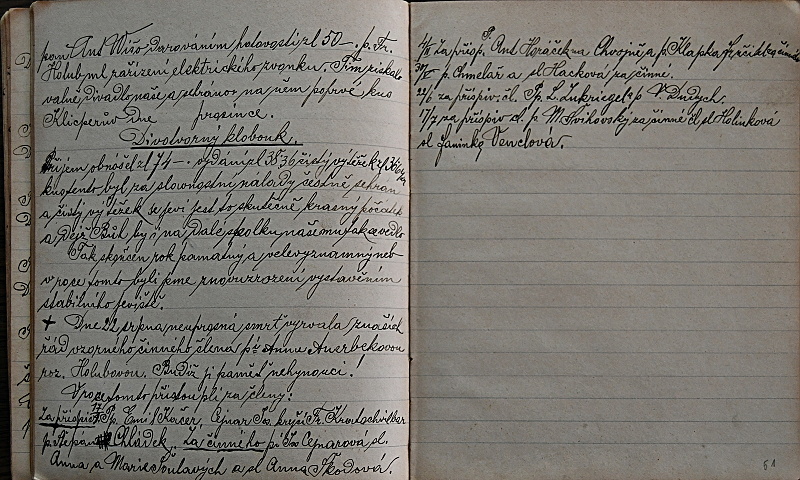 pan Ant Wišo darováním hotovosti zl 50–. p. Fr.
Holub ml zařízení elektrického zvonku. Tím získalo
valně divadlo naše a sehráno na něm poprvé kus
Klicperův Dne prosince.
Divotvorný klobouk.
Příjem obnášel zl 74–. vydání zl 38 36 čistý výtěžek zl
kus tento byl za slavnostní nálady čestně sehrán
a čistý výtěžek se jeví jest to skutečně krásný počátek
a dejž Bůh by i na dále spolku našemu tak se vedlo
Tak skončen rok památný a velevýznamný neb
v roce tomto byli jsme znovuzrozeni vystavěním
stabilního jeviště.
+ Dne 22 srpna neúprosná smrt vyrvala z našich
řad vzorného činného člena pí Annu Auerbekovou
roz. Holubovou. Budiž jí paměť nehynoucí!
V roce tomto přistoupli za členy:
Za přispiv. Pp. Emil Kačer, Cejnar Jos krejčí Fr. Kratochvil
p. Štěpán Chládek. Za činného pí Jos Cejnarová, sl.
Anna a Marie Šoulavých a sl Anna Škodová.
4/3 za přisp. P. Ant Horáček na Chvojně a p Klapka
30/5 p. Chmelař a sl Hacková za činné.
22/6 za přispiv. čl. Pp. L. p V. Dudych.
17/7 za přispiv čl. p M. Tvihovský za činné čl sl Holinková
sl Faninka Venclová.
61